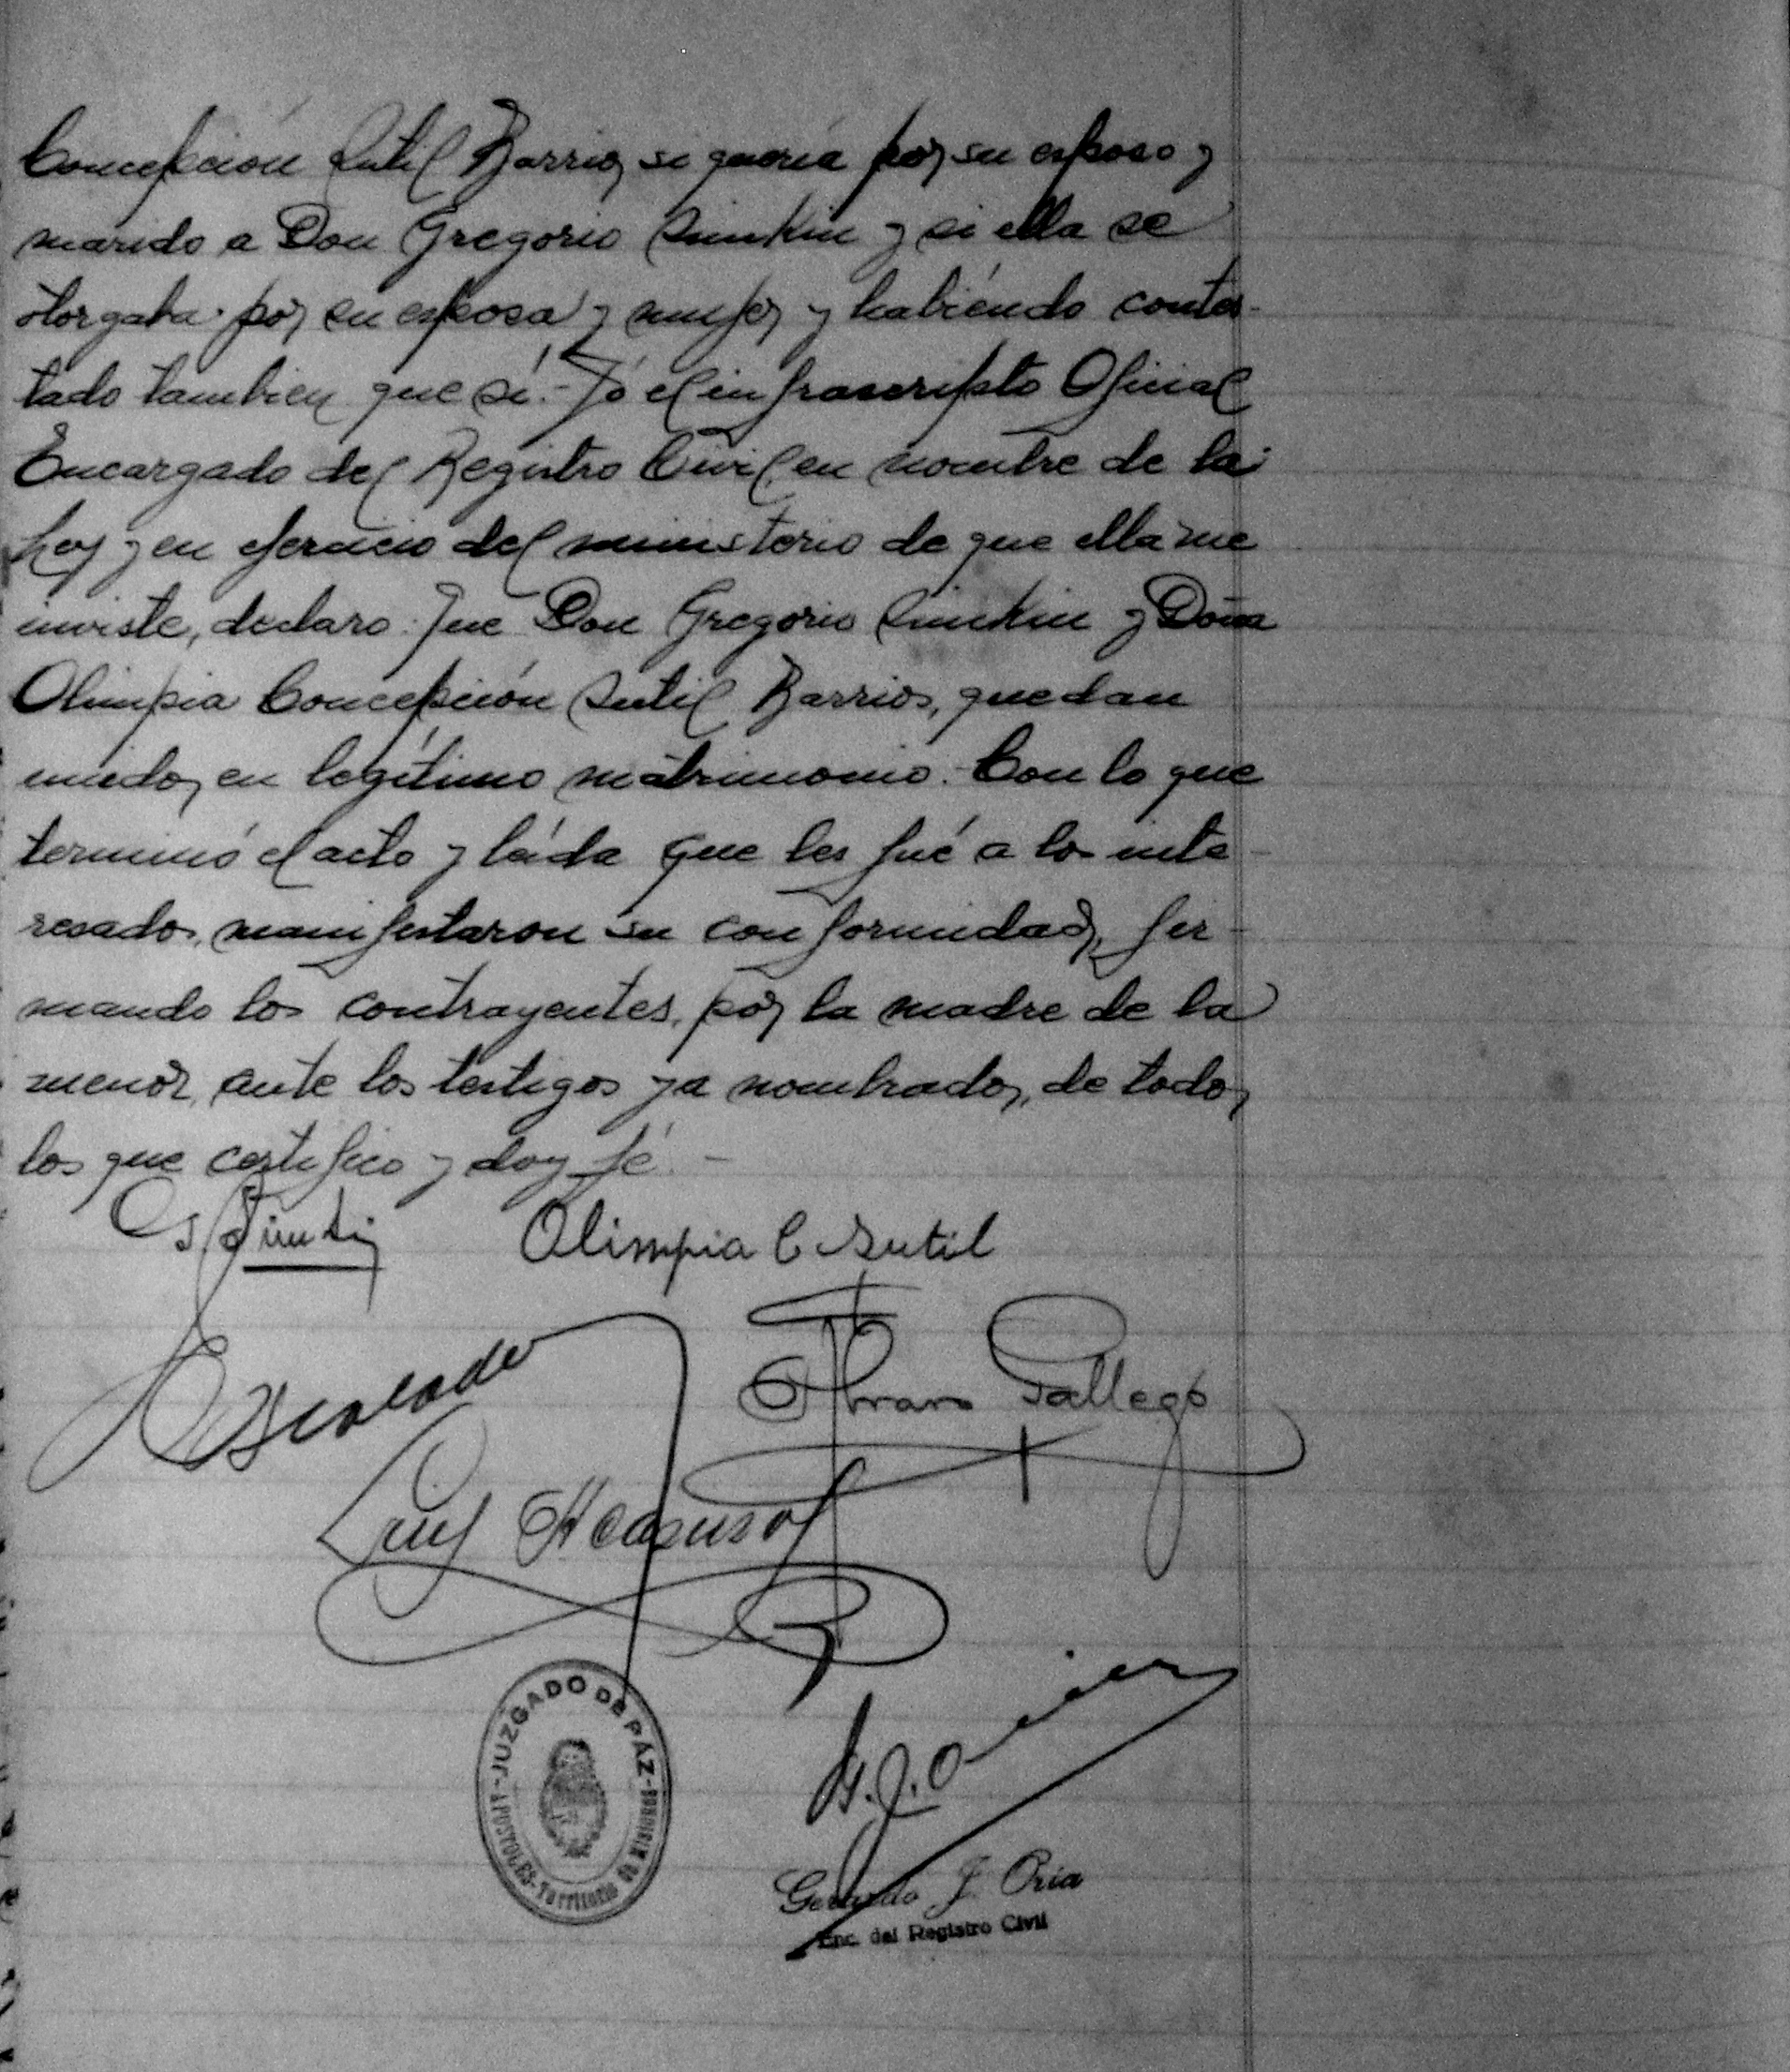 Concepción Sutil Barrios si quería por su esposo y
marido a Don Gregorio Simkin y si ella se
otorgaba por su esposa y mujer y habiendo contes-
tado tambien que sí.- Yó el infrascripto Oficial
Encargado del Registro Civil, en nombre de la
Ley y en ejercicio del ministerio de que ella me
inviste, declaro: Que Don Gregorio Simkin y Doña
Olimpia Concepción Sutil Barrios, quedan
unidos en legítimo matrimonio.- Con lo que
terminó el acto y leída que les fué a los inte-
resados, manifestaron su conformidad, fir-
mando los contrayentes, por la madre de la
menor, ante los testigos ya nombrados, de todos
los que certifico y doy fé.-
Olimpia C Sutil
Gallego
Luis
JUZGADO DE PÁZ
APOSTOLES - Territorio de Misiones
G. J. Oria
Gerardo J. Oria
Enc. del Registro Civil